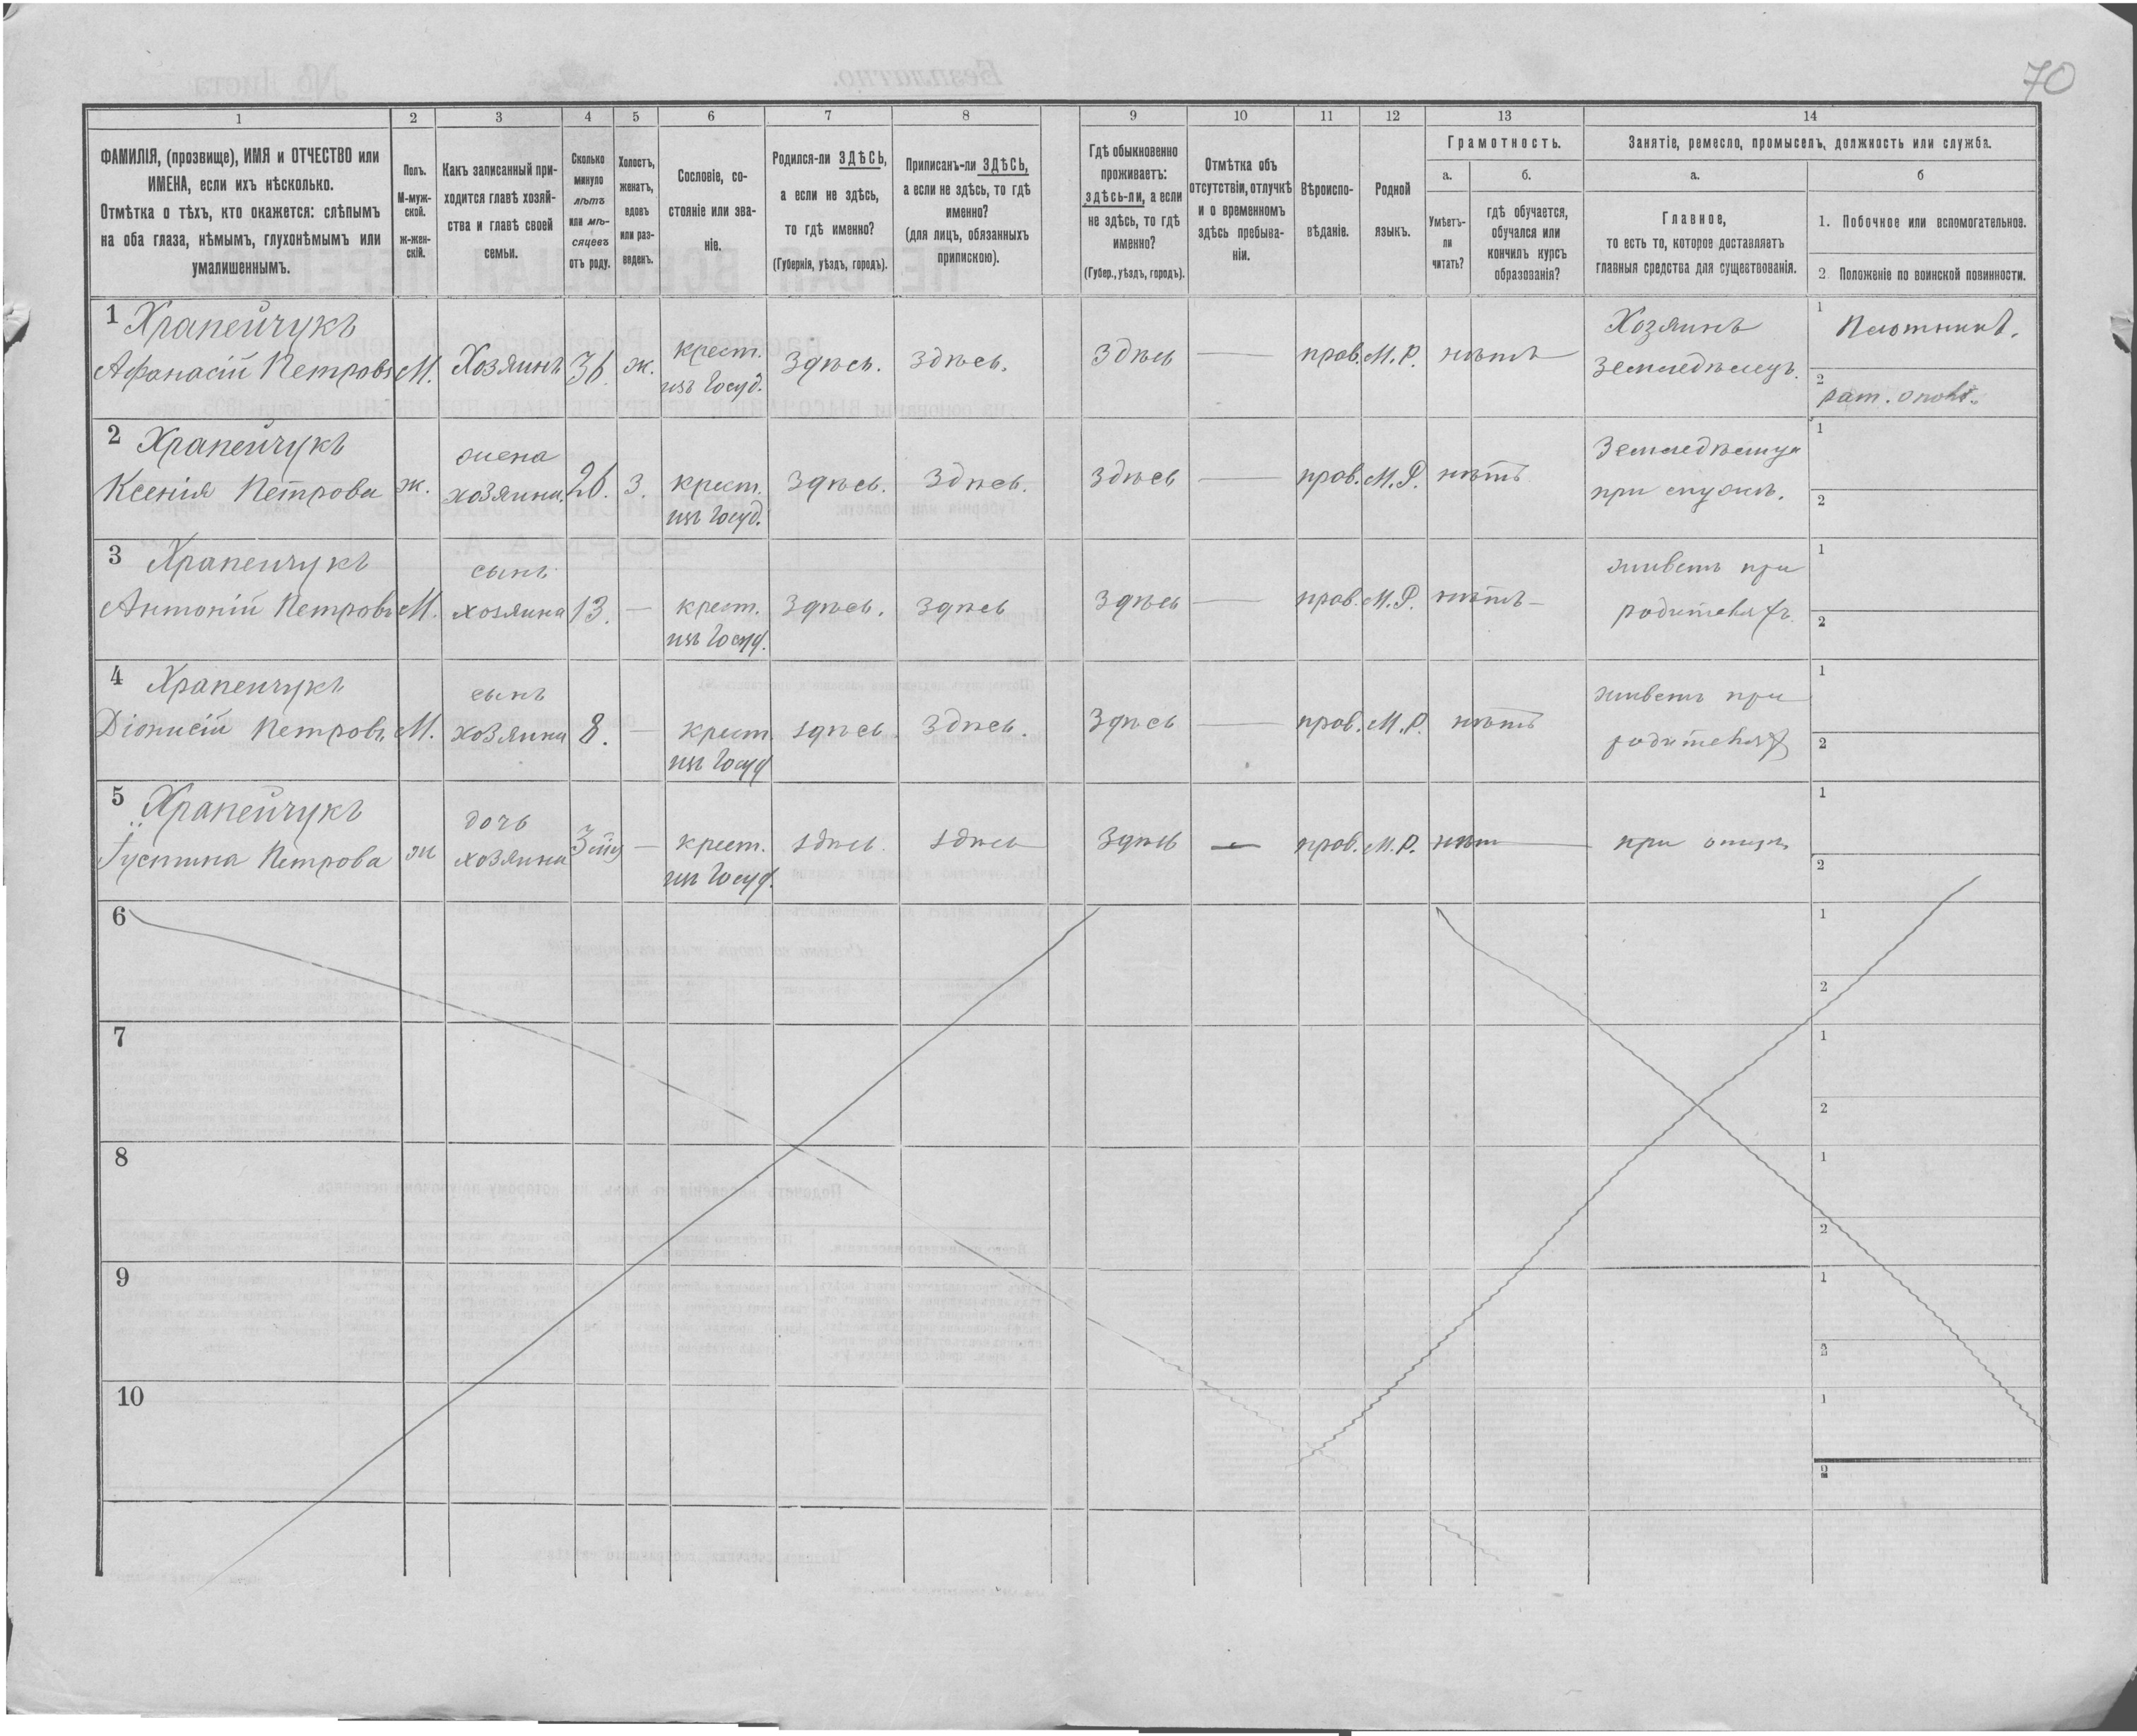 70
1
2
3
4
5
6
7
8
9
10
11
12
13
14
ФАМИЛІЯ, (прозвище), ИМЯ и ОТЧЕСТВО или
ИМЕНА, если ихъ нѣсколько.
Отмѣтка о тѣхъ, кто окажется: слѣпымъ
на оба глаза, нѣмымъ, глухонѣмымъ или
умалишеннымъ.
Полъ.
М-муж-
ской.
ж-жен-
скій.
Какъ записанный при-
ходится главѣ хозяй-
ства и главѣ своей
семьи.
Сколько
минуло
лѣтъ
или мѣ-
сяцевъ
отъ роду.
Холостъ,
женатъ,
вдовъ
или раз-
веденъ.
Сословіе, со-
стояніе или зва-
ніе.
Родился-ли ЗДѢСЬ,
а если не здѣсь,
то гдѣ именно?
(Губернія, уѣздъ, городъ).
Приписанъ-ли ЗДѢСЬ,
а если не здѣсь, то гдѣ
именно?
(для лицъ, обязанныхъ
припискою).
Гдѣ обыкновенно
проживаетъ:
здѣсь-ли, а если
не здѣсь, то гдѣ
именно?
(Губер., уѣздъ, городъ).
Отмѣтка объ
отсутствіи, отлучкѣ
и о временномъ
здѣсь пребыва-
ніи.
Вѣроиспо-
вѣданіе.
Родной
языкъ.
Грамотность.
а.
б.
Умѣетъ-
ли
читать?
гдѣ обучается,
обучался или
кончилъ курсъ
образованія?
Занятіе, ремесло, промыселъ, должность или служба.
а.
б
Главное,
то есть то, которое доставляетъ
главныя средства для существованія.
1. Побочное или вспомогательное.
2. Положеніе по воинской повинности.
1 Храпейчукъ
Афанасій Петровъ
М.
Хозяинъ
36
ж.
крест.
изъ Госуд.
Здѣсь.
Здѣсь.
Здѣсь
прав.
М.Р.
нѣтъ
Хозяинъ
Земледѣлецъ.
1 Плотникъ.
2 рат. опол.
2 Храпейчукъ
Ксенія Петрова
ж.
жена
хозяина.
26.
З.
крест.
изъ Госуд.
Здѣсь.
Здѣсь.
Здѣсь
прав.
М.Р.
нѣтъ
при мужѣ.
1
2
3 Храпейчукъ
Антоній Петровъ
М.
сынъ
хозяина
13.
крест.
изъ Госуд.
Здѣсь.
Здѣсь
Здѣсь
прав.
М.Р.
нѣтъ
живетъ при
родителяхъ.
1
2
4 Храпейчукъ
Діонисій Петровъ
М.
сынъ
хозяина
8.
крест.
изъ Госуд
здѣсь
Здѣсь.
Здѣсь
прав.
М.Р.
нѣтъ
живетъ при
родителях
1
2
5 Храпейчукъ
Іустина Петрова
ж
дочь
хозяина
крест.
изъ Госуд.
здѣсь.
здѣсь
Здѣсь
прав.
М.Р.
нѣт
при отцѣ
1
2
6
1
2
7
1
2
8
1
2
9
1
2
10
1
2